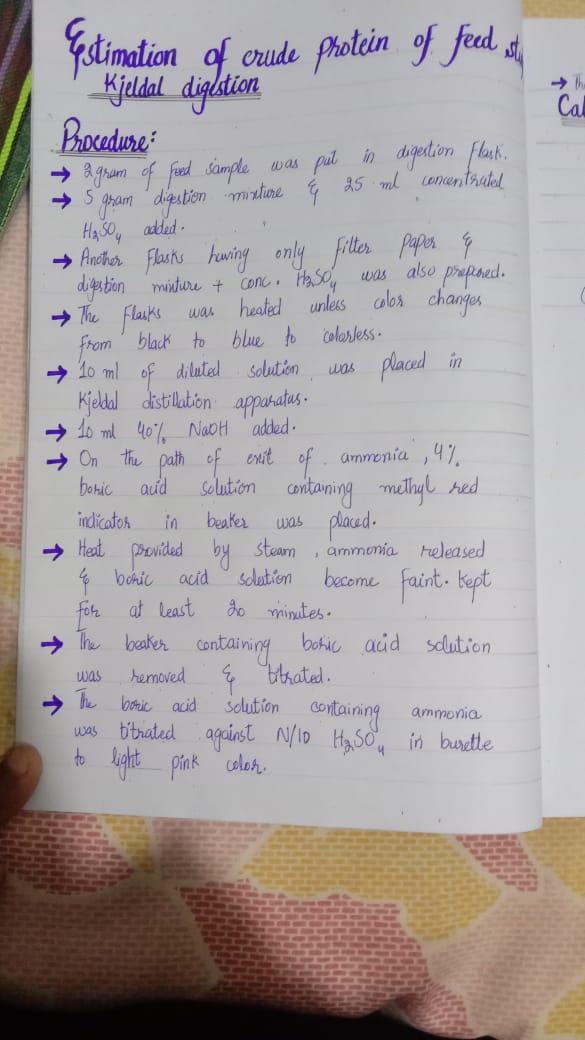 Estimation of crude protein of feed
Kjeldal digestion
Procedure:
→ 2 gram of feed sample was put in digestion flask.
→ 5 gram digestion mixture & 25 ml concentrated
H₂SO₄ added.
→ Another Flasks having only filter paper &
digestion mixture + conc. H₂SO₄ was also prepared.
→ The Flasks was heated unless color changes
from black to blue to colorless.
→ 10 ml of diluted solution was placed in
Kjeldal distillation apparatus.
→ 10 ml 40% NaOH added.
→ On the path of exit of ammonia, 4%
boric acid solution containing methyl red
indicator in beaker was placed.
→ Heat provided by steam, ammonia released
& boric acid solution become faint. Kept
for at least 20 minutes.
→ The beaker containing boric acid solution
was removed & titrated.
→ The boric acid solution containing ammonia
was titrated against N/10 H₂SO₄ in burette
to light pink color.